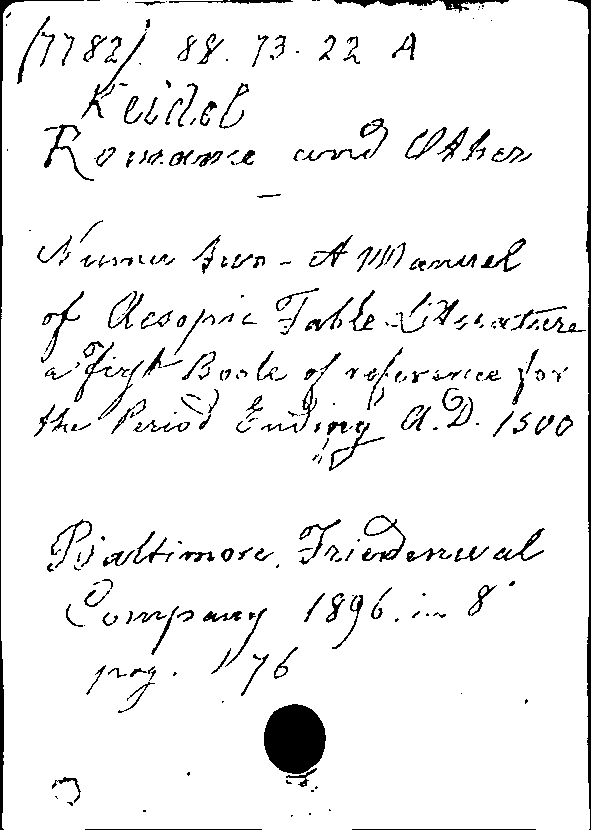 (7782). 88. 73. 22 A
Keidel
Romance and Other
—
Numer Two - A Manuel
of Aesopic Fable Literature
a First Book of reference for
the Period Ending A.D. 1500
Baltimore. Friedenwal
Company 1896. in 8°
pag. 176